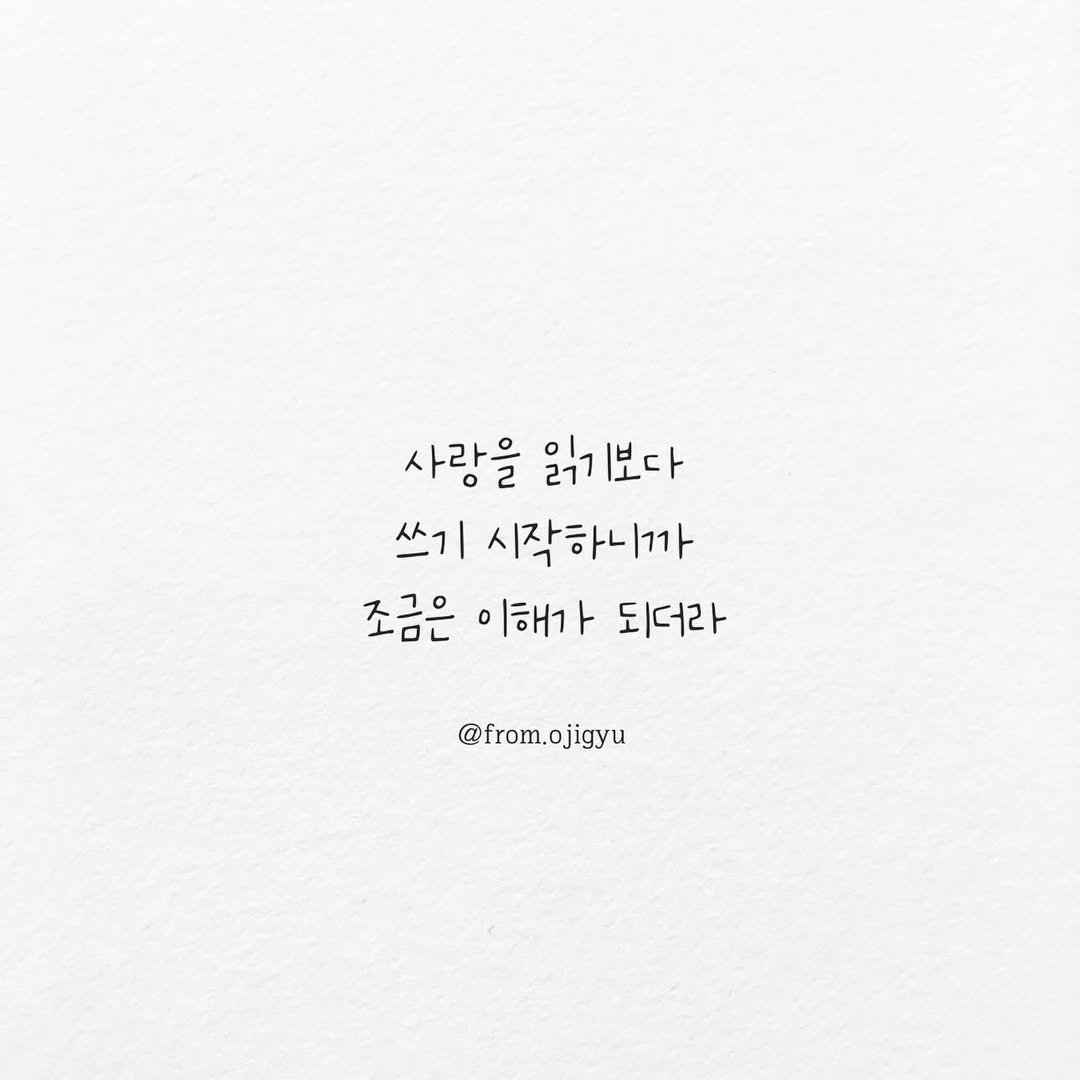 사랑을 읽기보다
쓰기 시작하니까
조금은 이해가 되더라
@from.ojigyu